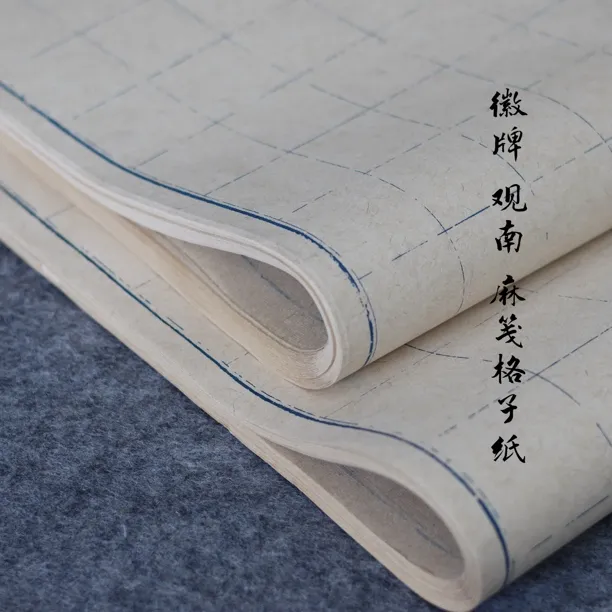 徽牌 观南 麻笺格子纸